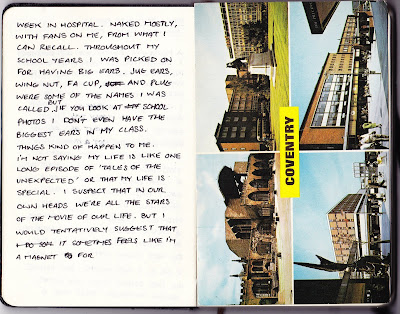 WEEK IN HOSPITAL. NAKED MOSTLY,
WITH FANS ON ME, FROM WHAT I
CAN RECALL. THROUGHOUT MY
SCHOOL YEARS I WAS PICKED ON
FOR HAVING BIG EARS. JUG EARS,
WING NUT, FA CUP, AND PLUG
WERE SOME OF THE NAMES I WAS
CALLED. BUT IF YOU LOOK AT SCHOOL
PHOTOS I DON'T EVEN HAVE THE
BIGGEST EARS IN MY CLASS.
THINGS KIND OF HAPPEN TO ME.
I'M NOT SAYING MY LIFE IS LIKE ONE
LONG EPISODE OF 'TALES OF THE
UNEXPECTED' OR THAT MY LIFE IS
SPECIAL. I SUSPECT THAT IN OUR
OWN HEADS WE'RE ALL THE STARS
OF THE MOVIE OF OUR LIFE. BUT I
WOULD TENTATIVELY SUGGEST THAT
IT SOMETIMES FEELS LIKE I'M
A MAGNET FOR
COVENTRY